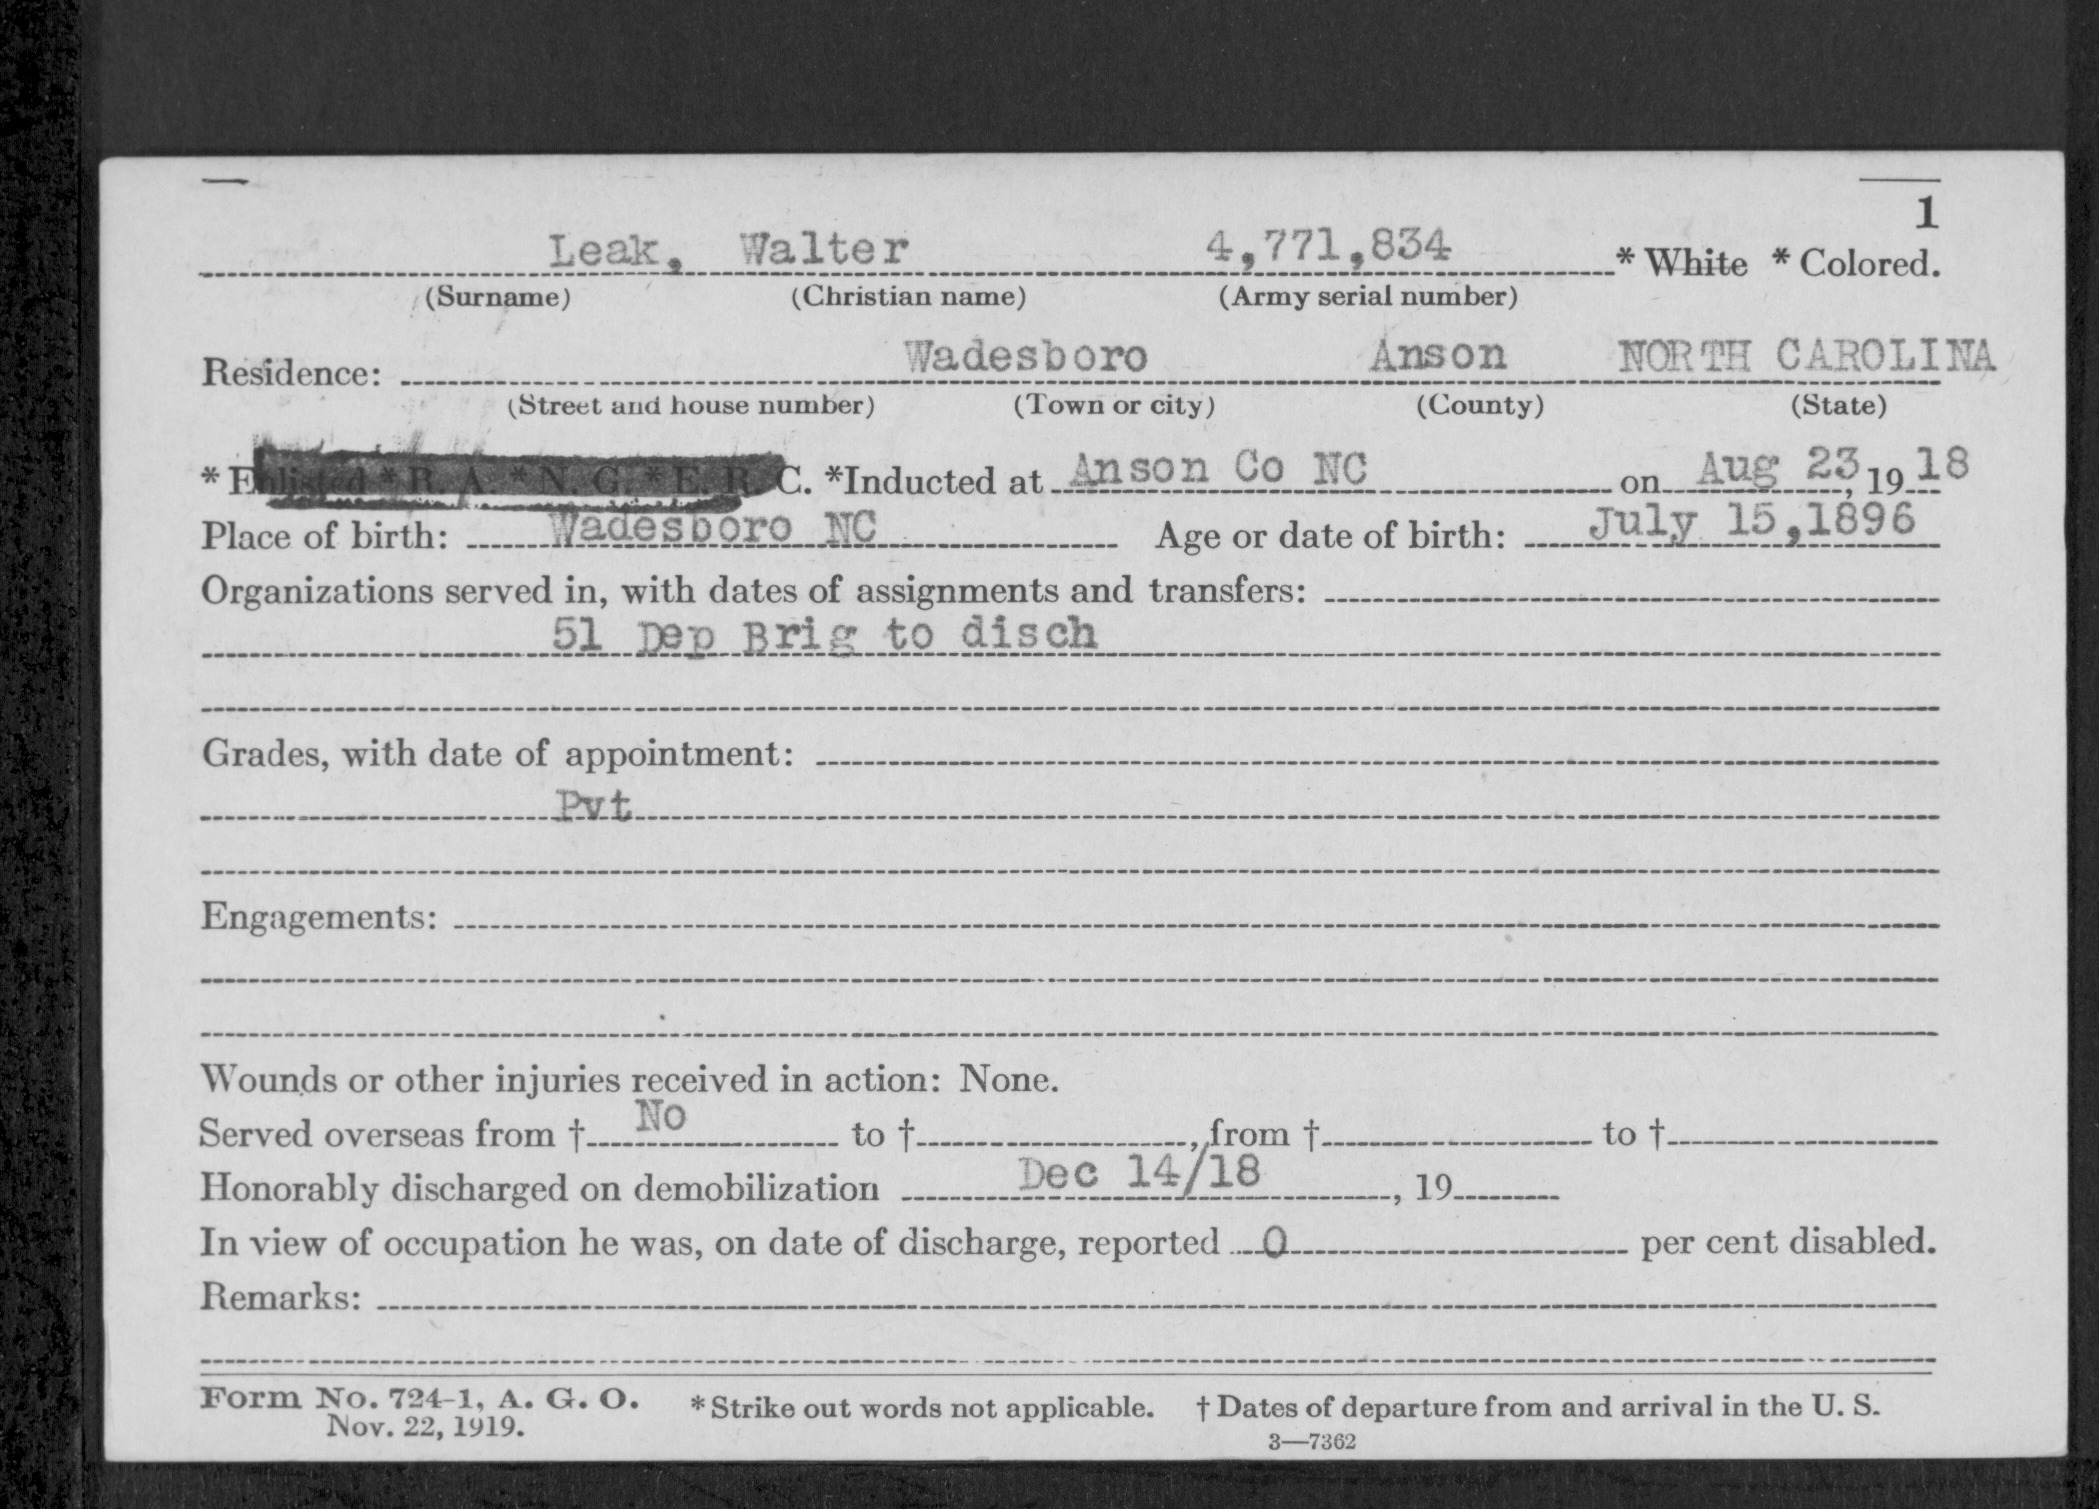 1
Leak, Walter 4,771,834 * White * Colored.
(Surname) (Christian name) (Army serial number)
Residence: Wadesboro Anson NORTH CAROLINA
(Street and house number) (Town or city) (County) (State)
* Enlisted * R. A. * N. G. * E. R. C. *Inducted at Anson Co NC on Aug 23, 19 18
Place of birth: Wadesboro NC Age or date of birth: July 15,1896
Organizations served in, with dates of assignments and transfers:
51 Dep Brig to disch
Grades, with date of appointment:
Pvt
Engagements:
Wounds or other injuries received in action: None.
Served overseas from † No to † , from † to †
Honorably discharged on demobilization Dec 14/18 , 19
In view of occupation he was, on date of discharge, reported 0 per cent disabled.
Remarks:
Form No. 724-1, A. G. O. *Strike out words not applicable. † Dates of departure from and arrival in the U. S.
Nov. 22, 1919. 3—7362